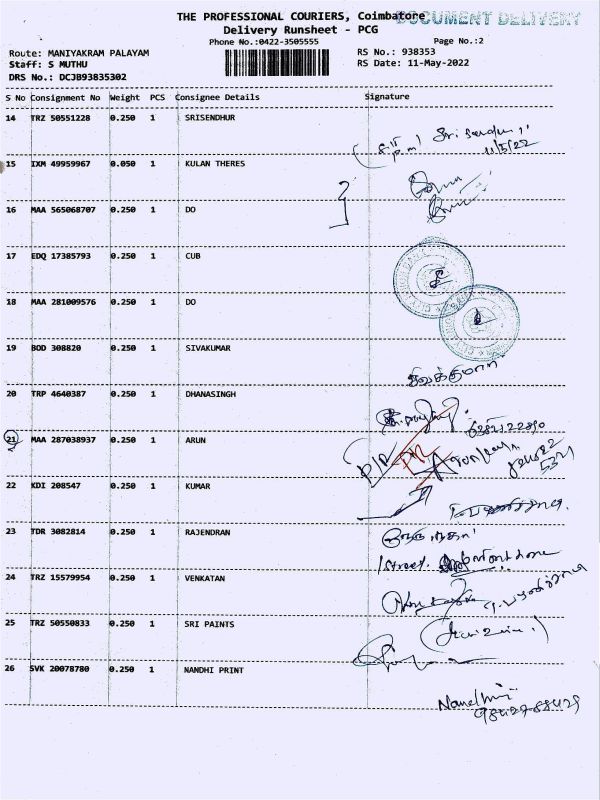 THE PROFESSIONAL COURIERS, Coimbatore
DOCUMENT DELIVERY
Delivery Runsheet - PCG
Phone No.:0422-3505555
Page No.:2
Route: MANIYAKRAM PALAYAM
RS No.: 938353
Staff: S MUTHU
RS Date: 11-May-2022
DRS No.: DCJB93835302
S No Consignment No Weight PCS Consignee Details Signature
14 TRZ 50551228 0.250 1 SRISENDHUR
11/5/22
15 IXM 49959967 0.050 1 KULAN THERES
16 MAA 565068707 0.250 1 DO
17 EDQ 17385793 0.250 1 CUB
18 MAA 281009576 0.250 1 DO
19 BOD 308820 0.250 1 SIVAKUMAR
சிவக்குமார்
20 TRP 4640387 0.250 1 DHANASINGH
21 MAA 287038937 0.250 1 ARUN
22 KDI 208547 0.250 1 KUMAR
23 TDR 3082814 0.250 1 RAJENDRAN
24 TRZ 15579954 0.250 1 VENKATAN
25 TRZ 50550833 0.250 1 SRI PAINTS
26 SVK 20078780 0.250 1 NANDHI PRINT